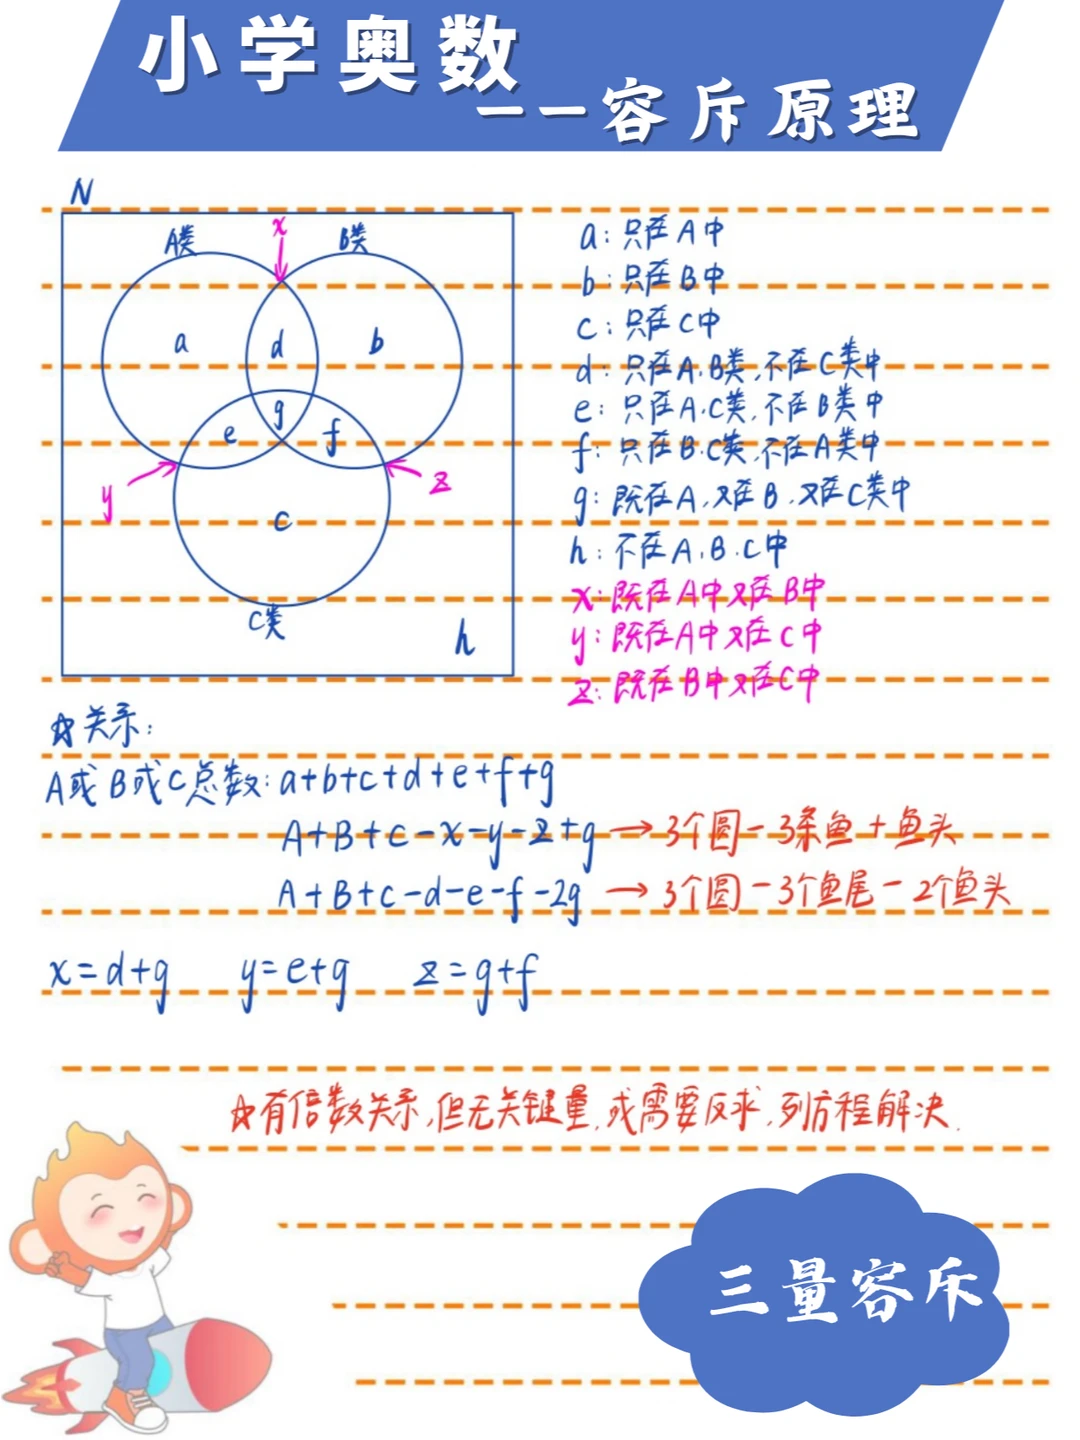 小学奥数
——容斥原理
N
A类
x
B类
a
d
b
g
e
f
y
z
c
C类
h
a:只在A中
b:只在B中
c:只在C中
d:只在A、B类,不在C类中
e:只在A、C类,不在B类中
f:只在B、C类,不在A类中
g:既在A,又在B,又在C类中
h:不在A、B、C中
x:既在A中又在B中
y:既在A中又在C中
z:既在B中又在C中
☆关系:
A或B或C总数:a+b+c+d+e+f+g
A+B+C-x-y-z+g→3个圆-3条鱼+鱼头
A+B+C-d-e-f-2g→3个圆-3个鱼尾-2个鱼头
x=d+g y=e+g z=g+f
☆有倍数关系,但无关键量,或需要反求,列方程解决.
三量容斥